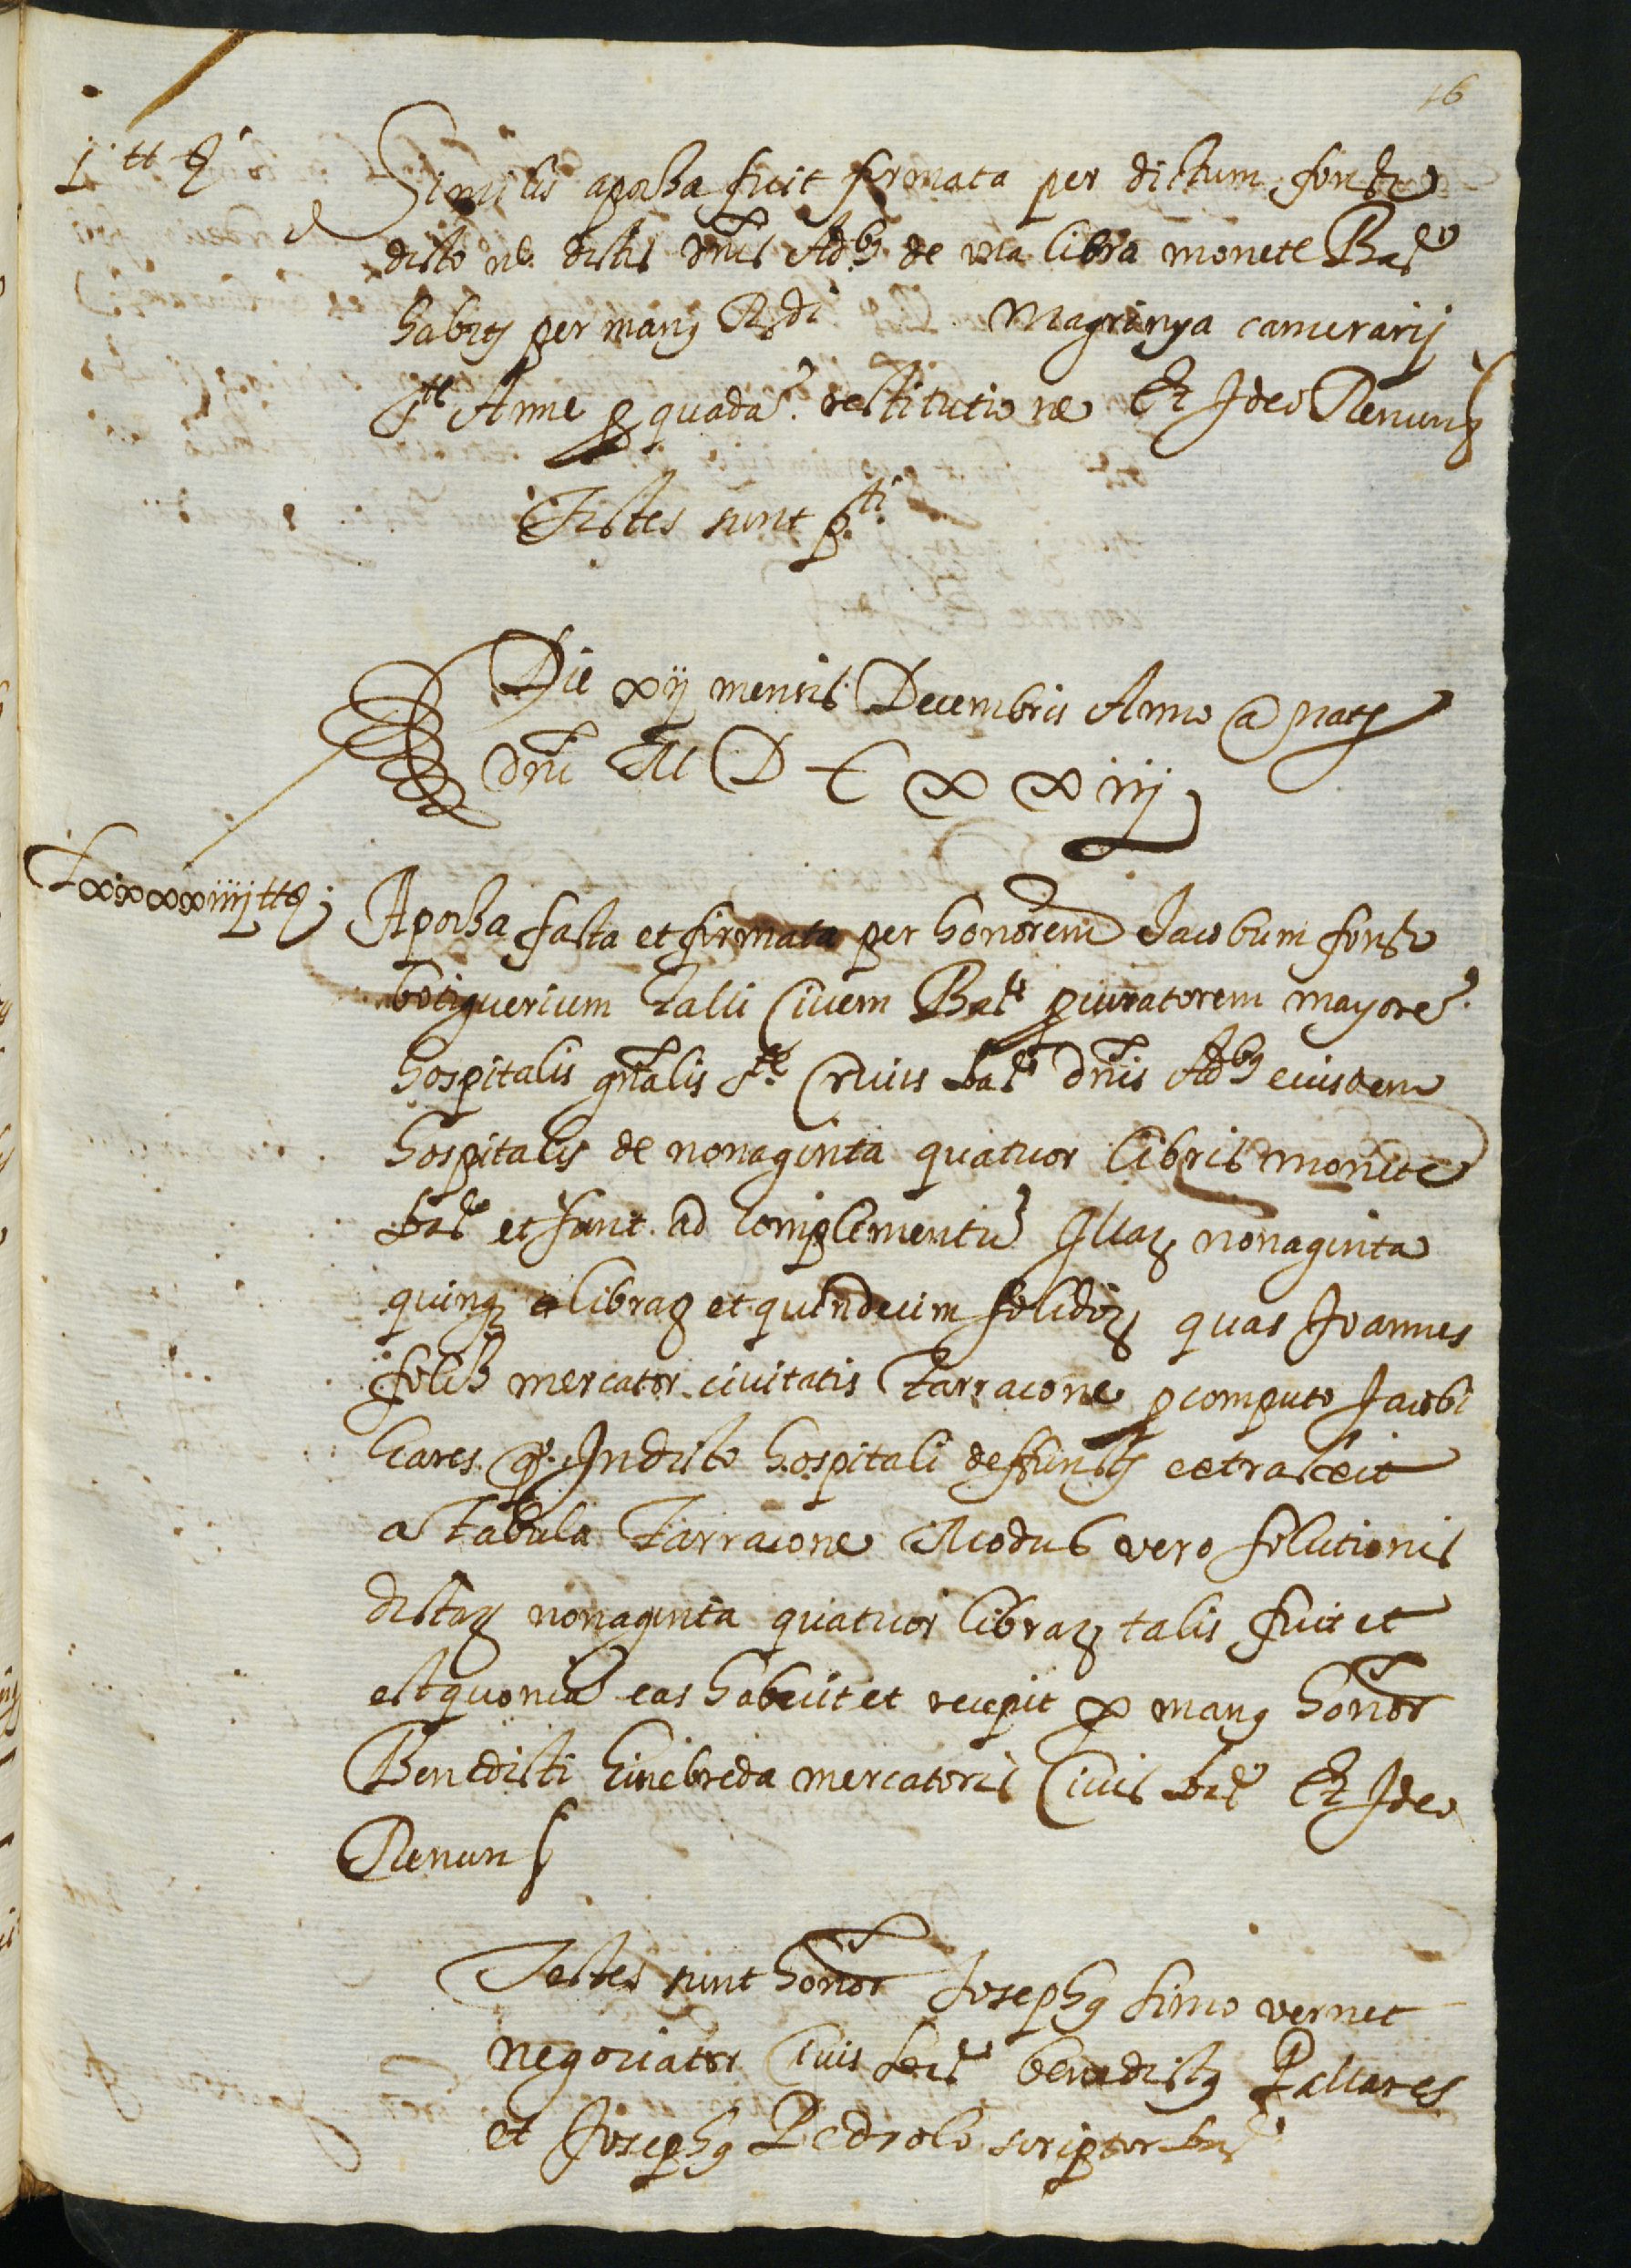 16
I tt ƺ
Similis apocha fuit firmata per dictum fonts
dicto nᵉ dictis dnis Adᵇꝰ de vna libra monete Barᵉ
habitꝭ per manꝰ Rdi Magrinya camerarij
stᵉ Anne ꝑ quadā restitutione Et Ideo Renunꝭ
Testes sunt ꝑᵗⁱ
Die xij mensis Decembris Anno a Natꝭ
dni M D C x x iiij
Lxxxxiiij tt ƺ
Apocha facta et firmata per honorem Jacobum fonts
botiguerium Talli Ciuem Barᵉ ꝓcuratorem mayorē
hospitalis gñalis stᵉ Crucis barᵉ dnis Adᵇꝰ eiusdem
hospitalis de nonaginta quatuor libris monete
barᵉ et sunt ad complementū Illaꝝ nonaginta
quinqꝫ libraꝝ et quindecim solidoꝝ quas Joannes
folch mercator ciuitatis Tarracone ꝑ computo Jacobi
liares qº. In dicto hospitali deffunctꝭ extraxit
a tabula Tarracone Modus vero solutionis
dictaꝝ nonaginta quatuor libraꝝ talis fuit et
est quoniā eas habuit et recepit ꝑ manꝰ honor
Benedicti Ginebreda mercatoris Ciuis barᵉ Et Ideo
Renunꝭ
Testes sunt honor Josephꝰ simo vernet
negociator Ciuis barᵉ benedictꝰ Pallares
et Josephꝰ Pedrolo scriptor barᵉ